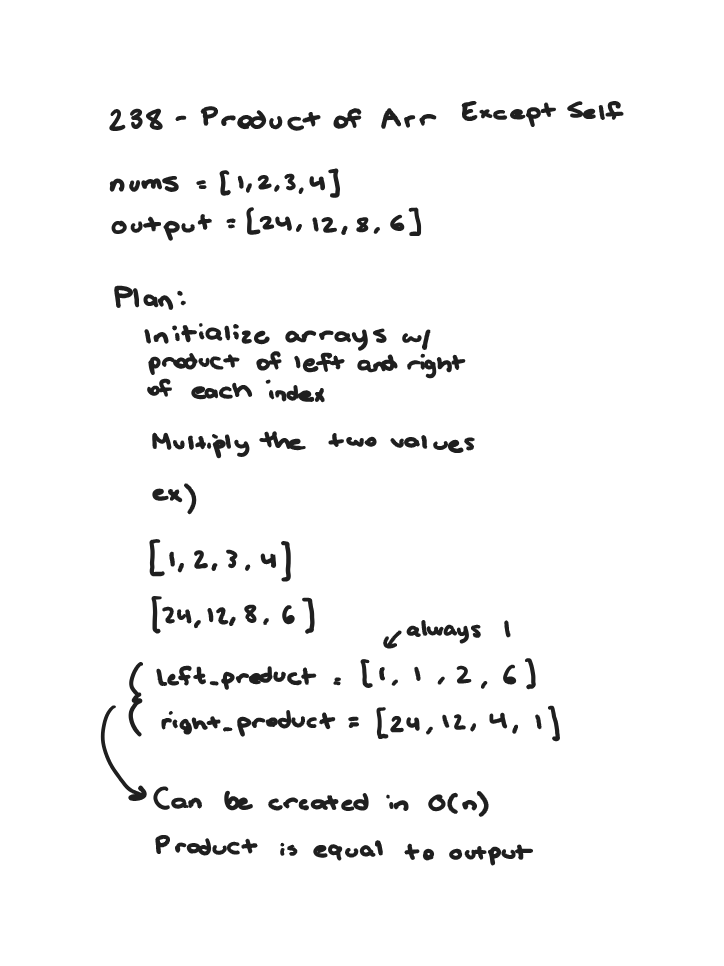 238 - Product of Arr Except Self
nums = [1,2,3,4]
output = [24, 12, 8, 6]
Plan:
Initialize arrays w/
product of left and right
of each index
Multiply the two values
ex)
[1, 2, 3, 4]
[24, 12, 8, 6]
always 1
left_product = [1, 1, 2, 6]
right_product = [24, 12, 4, 1]
Can be created in O(n)
Product is equal to output